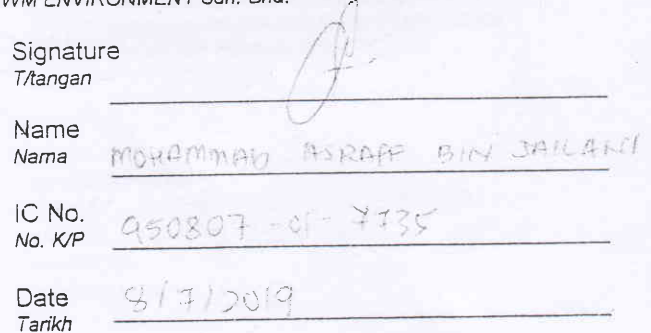 WM ENVIRONMENT Sdn. Bhd.
Signature
T/tangan
Name
Nama MOHAMMAD ASRAFF BIN JAILANI
IC No. 950807 - 01 - 7735
No. K/P
Date 8/7/2019
Tarikh